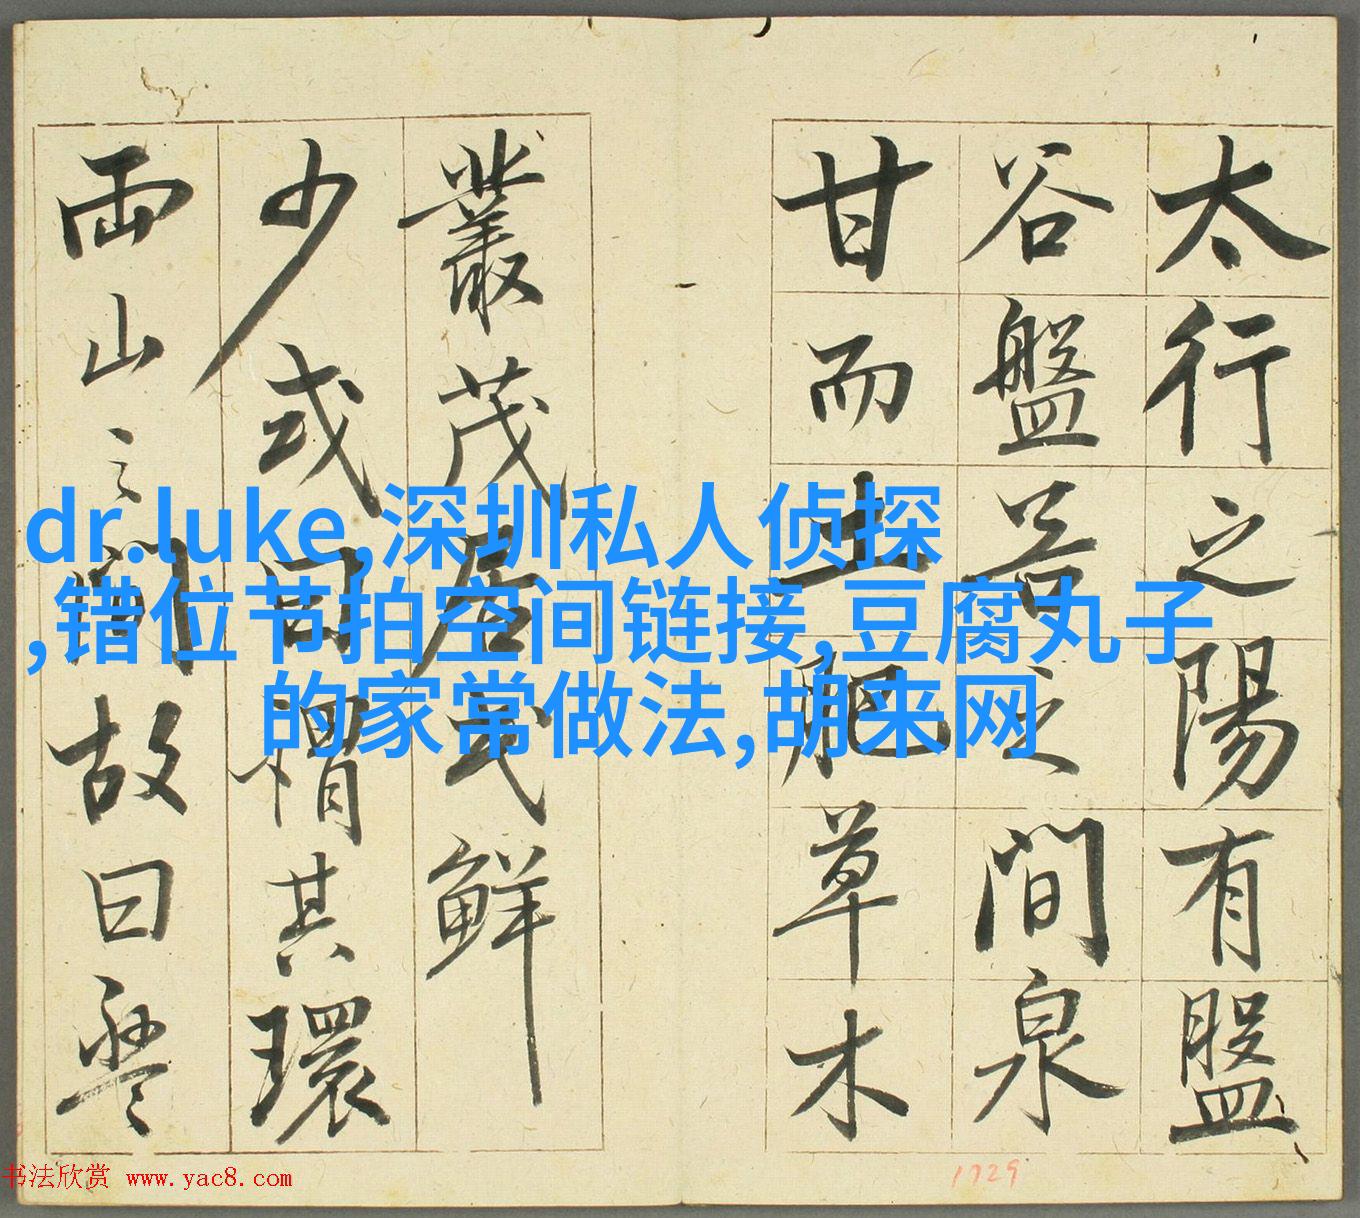 太行之陽有盤
谷盤谷之間泉
甘而土肥草木
叢茂居民鮮
少或曰謂其環
兩山之間故曰盤
dr.luke,深圳私人侦探
,错位节拍空间链接,豆腐丸子
的家常做法,胡来网
书法欣赏 www.yac8.com
1729